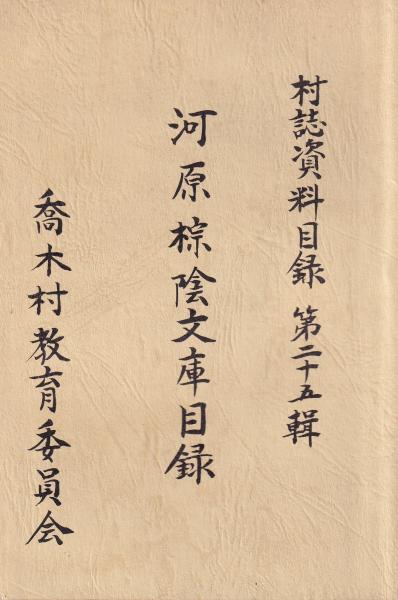 村誌資料目録 第二十五輯
河原棕陰文庫目録
喬木村教育委員会